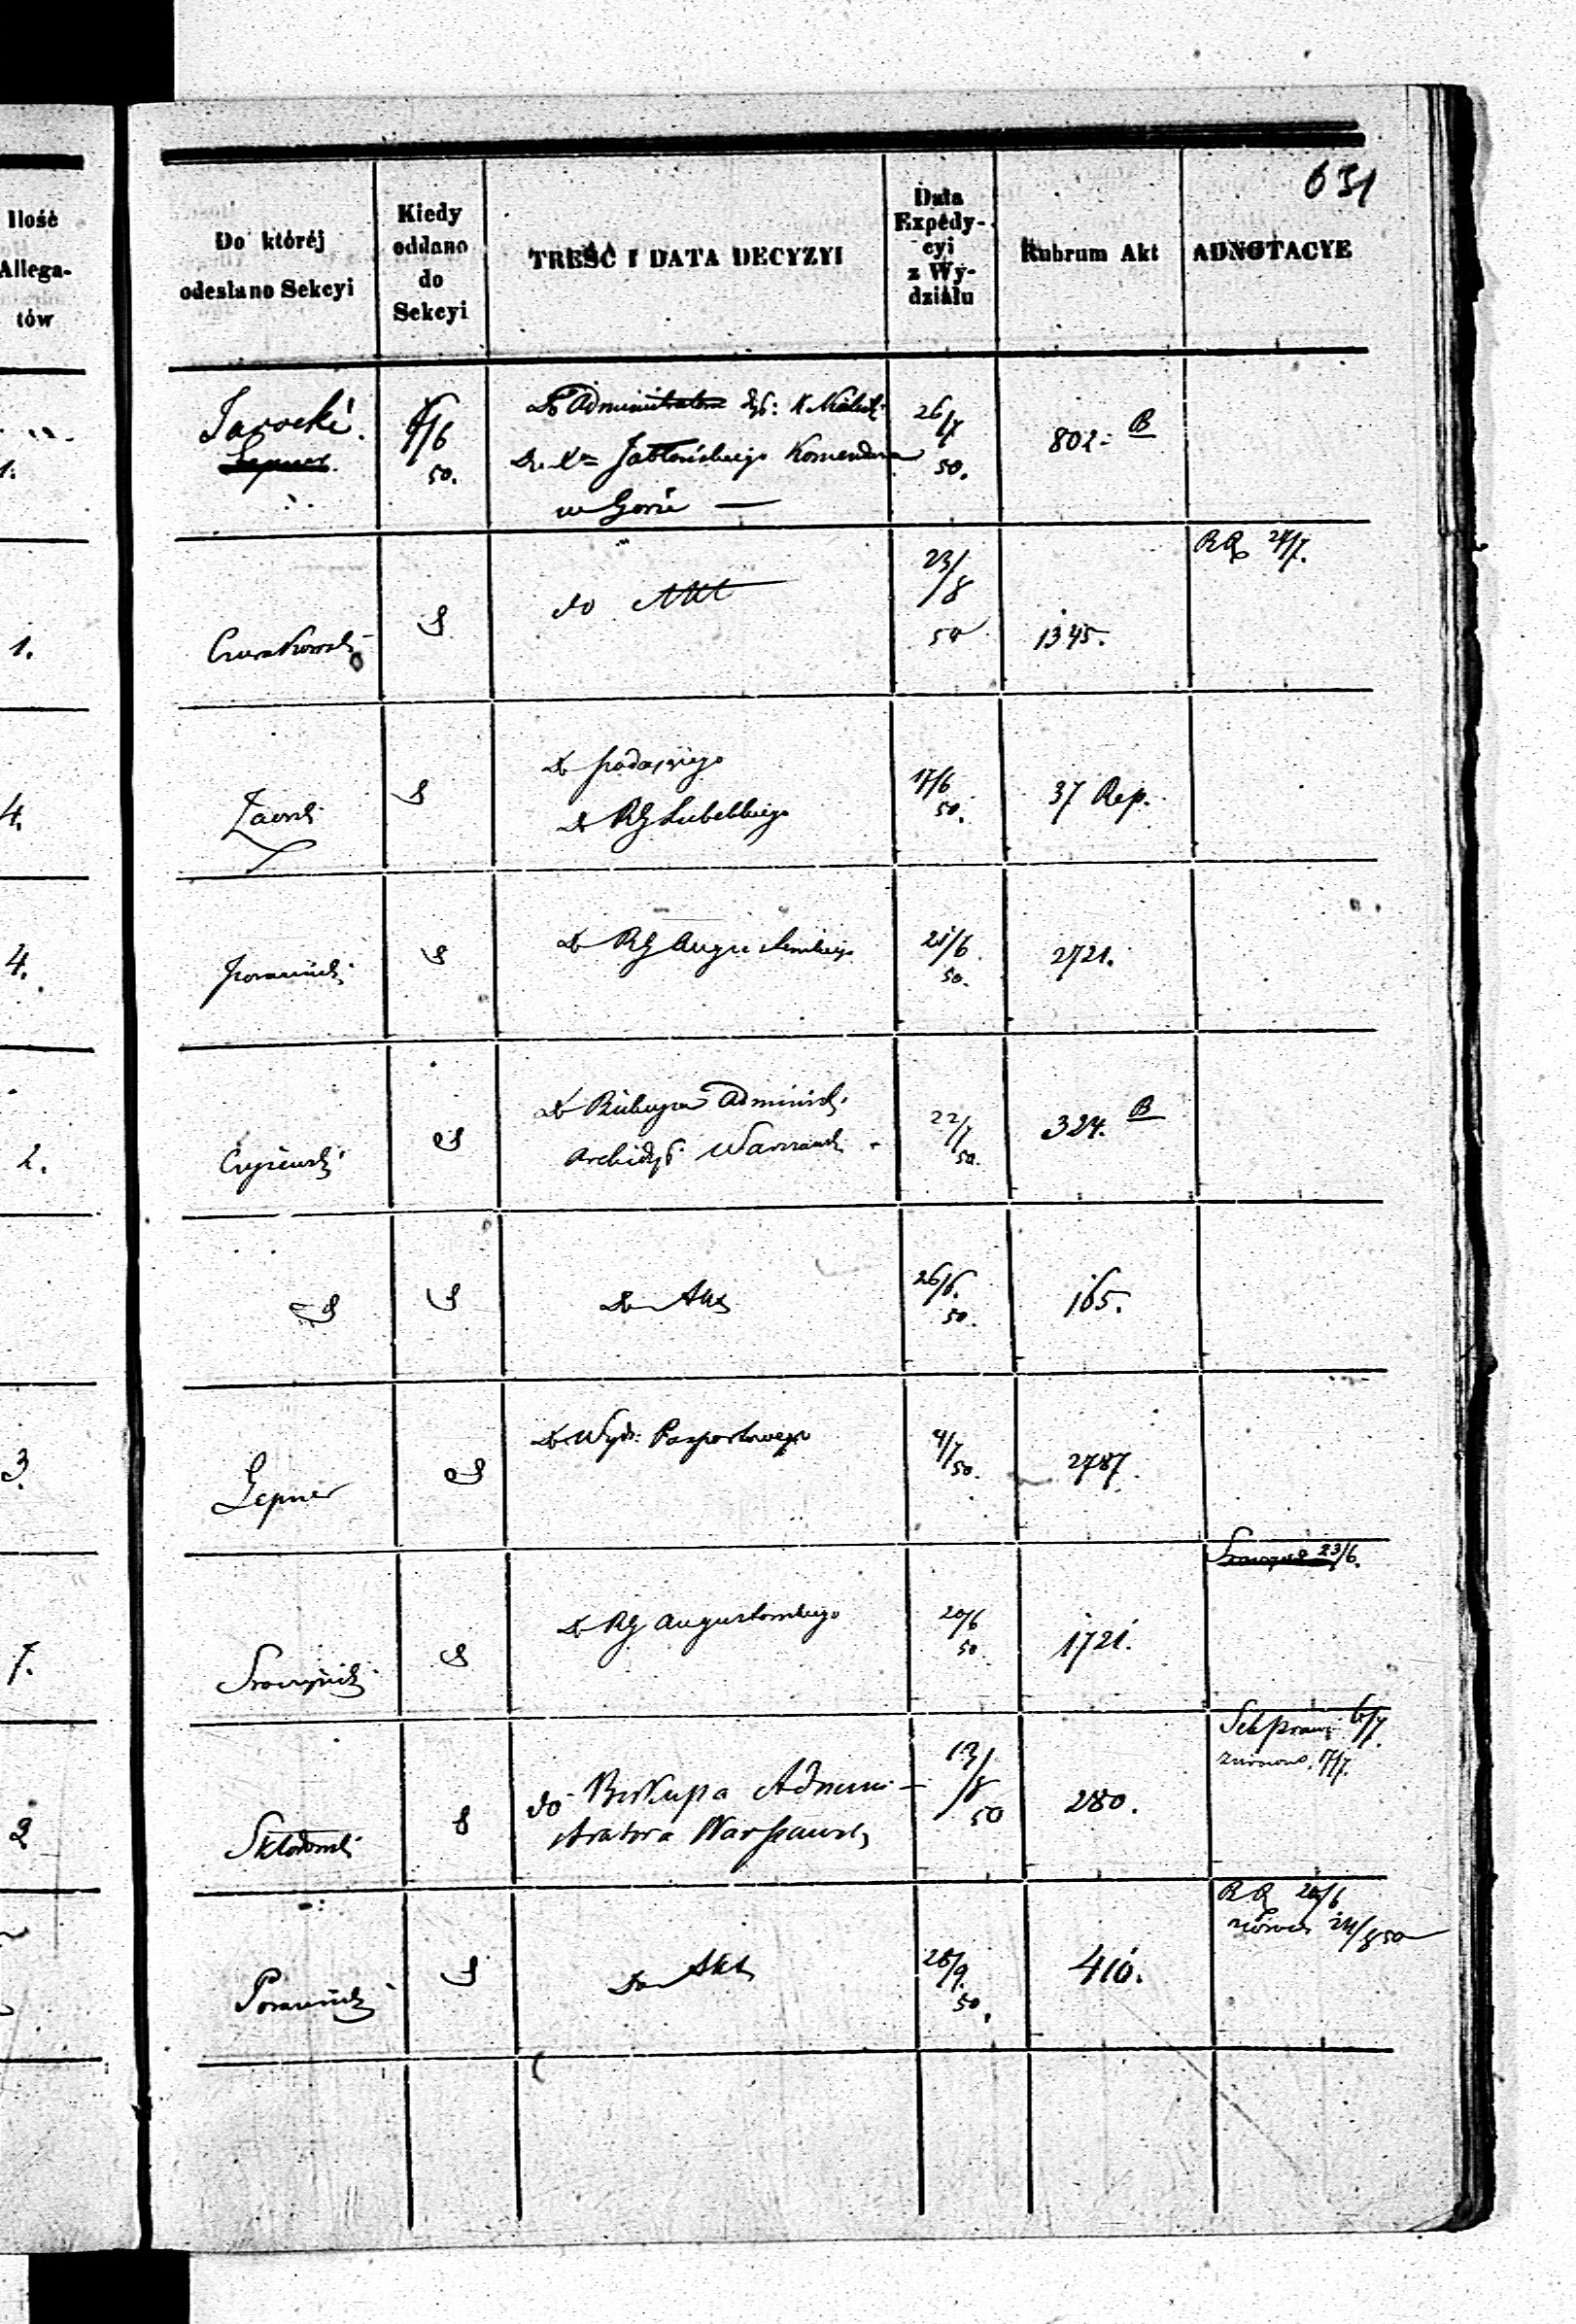 631
Ilość
Allega-
tów
Do któréj
odesłano Sekcyi
Kiedy
oddano
do
Sekcyi
TREŚĆ I DATA DECYZYI
Data
Expedy-
cyi
z Wy-
działu
Rubrum Akt
ADNOTACYE
1.
Jarocki
Lepner
6/6
50.
Do Administratora
Do Xa Jabłońskiego Komendarza
w Gorze —
26/7
50.
802. B
1.
do Akt
23/8
50
1345.
RG 24/7.
4.
Do podającego
Do RG Lubelskiego
17/6
50.
37 Rep.
4.
Do RG Augustowskiego
21/6
50.
2721.
2.
Czyżewski
Do Biskupa Administr.
Archidyec. Warszawsk.
22/7
50.
324. B
Do Akt
26/6.
50.
165.
3.
Lepner
Do Wydz. Paszportowego
4/7
50.
2787.
7.
Sroczyński
Do RG Augustowskiego
20/6
50
1721.
23/6.
2
Skłodowski
do Biskupa Admini-
stratora Warszawsk
13/8
50
280.
6/7
zwrócono 17/7.
Do Akt
28/9.
50.
410.